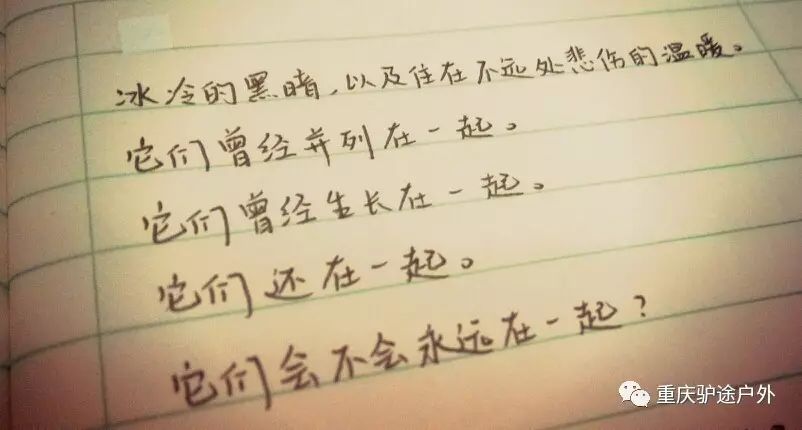 冰冷的黑暗,以及住在不远处悲伤的温暖。
它们曾经并列在一起。
它们曾经生长在一起。
它们还在一起。
它们会不会永远在一起?
重庆驴途户外